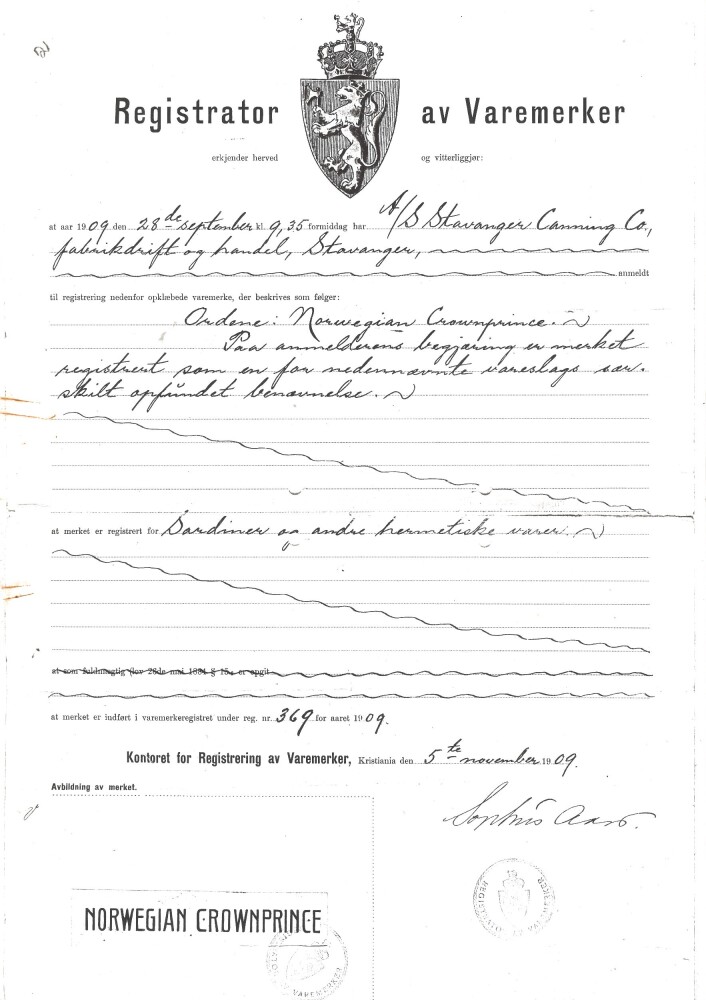 Registrator av Varemerker
erkjender herved og vitterliggjør:
at aar 1909 den 28de september kl. 9,35 formiddag har A/S Stavanger Canning Co.,
fabrikdrift og handel, Stavanger,
anmeldt
til registrering nedenfor opklæbede varemerke, der beskrives som følger:
Ordene: Norwegian Crownprince.
Paa anmelderens begjæring er merket
registrert som en for nedennævnte vareslags sær-
skilt opfundet benævnelse.
at merket er registrert for Sardiner og andre hermetiske varer.
at som fuldmægtig (lov 26de mai 1884 § 15) er opgit
at merket er indført i varemerkeregistret under reg. nr. 369 for aaret 1909.
Kontoret for Registrering av Varemerker, Kristiania den 5te november 1909.
Avbildning av merket.
Sophus Aars.
NORWEGIAN CROWNPRINCE
REGISTRATOR AV VAREMERKER
VAREMERKER